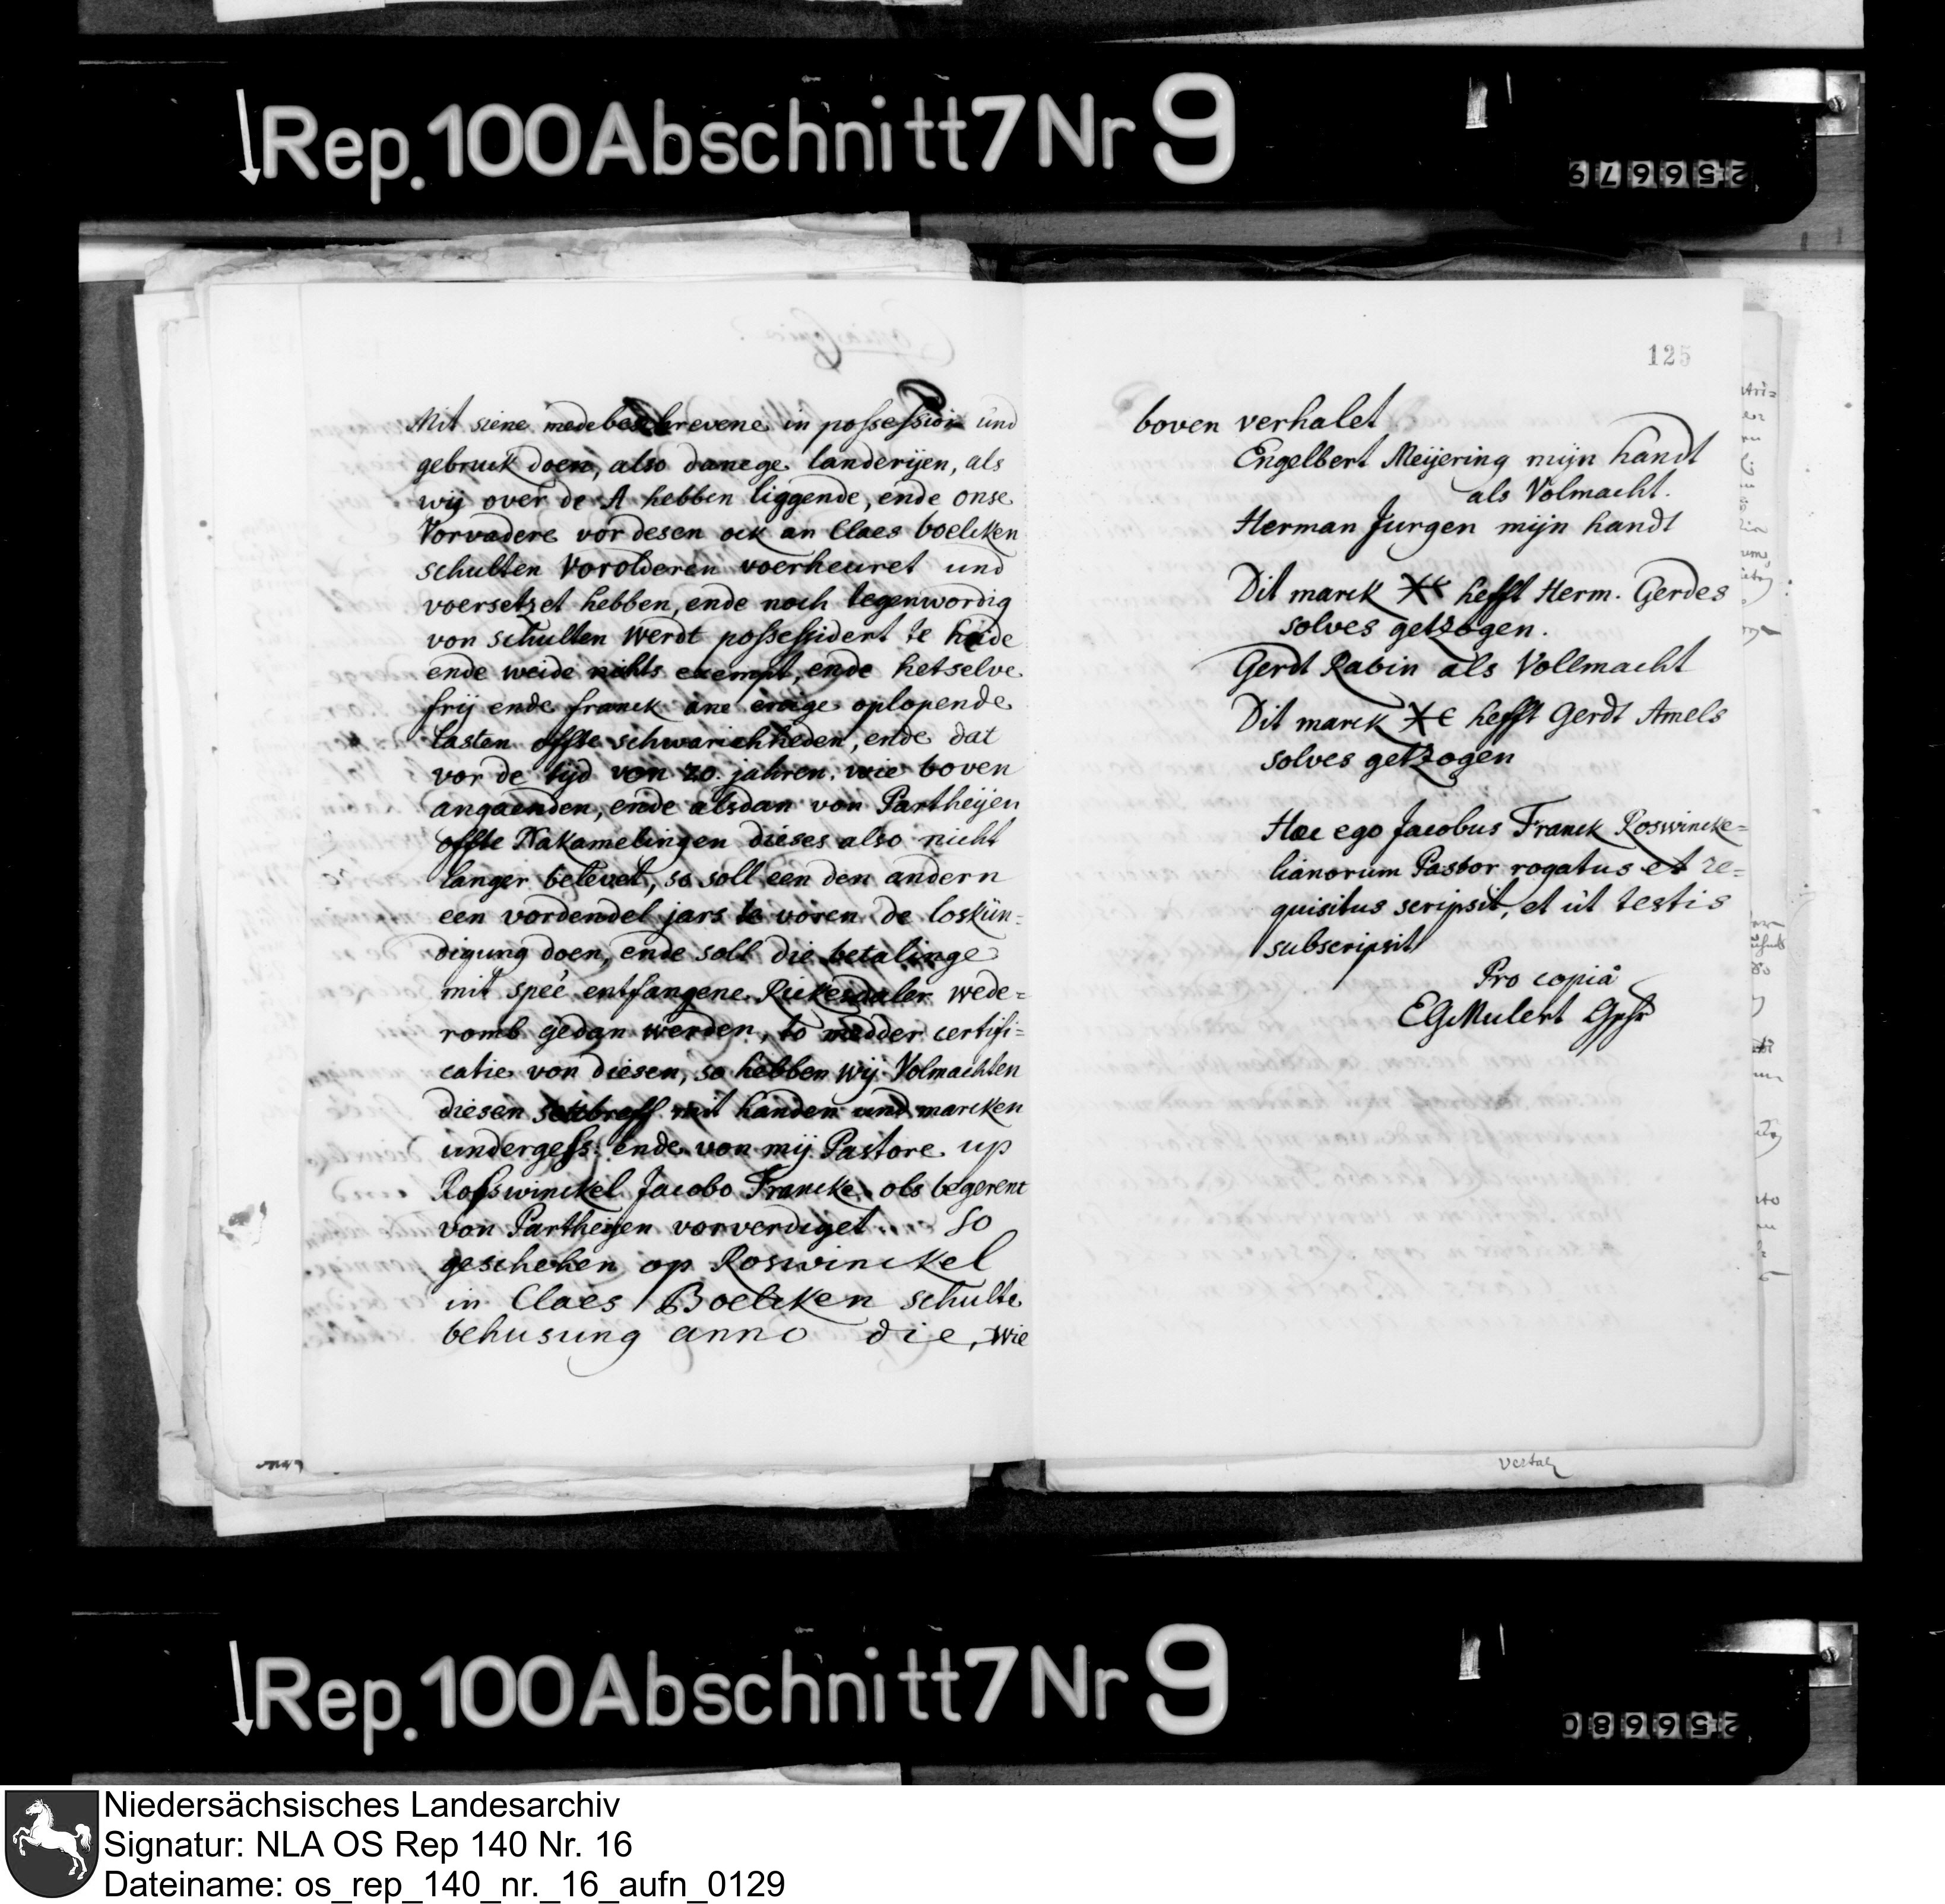 Rep. 100 Abschnitt 7 Nr 9
256679
125
Mit siene medebeschrevene in possession und
gebruck doen, also danege landerijen, als
wij over de A hebben liggende, ende onse
Vorvadere vor desen ock an Claes boelcken
schulten Vorolderen voerheuret und
voersetzet hebben, ende noch tegenwordig
von schulten werdt possessidert te heide
ende weide nichts exempt, ende hetselve
frij ende franck ane enige oplopende
lasten offte schwarichheden, ende dat
vor de tijd von 20. jahren. wie boven
angaenden, ende alsdan von Partheijen
offte Nakamelingen dieses also nicht
langer belevet, so soll een den andern
een vordendel jars te voren de loskün-
digung doen, ende soll die betalinge
mit speê entfangene Rickesdaler wede=
romb gedan werden, to medder certifi=
catie von diesen, so hebben wij Volmachten
diesen setzbreff mit handen und marcken
undergess: ende von mij Pastore up
Rosswinckel Jacobo Francke ols begerent
von Partheijen vorverdiget. So
geschehen op Roswinckel
in Claes Boelcken schulte
behusung anno die, wie
boven verhalet
Engelbert Meijering mijn handt
als Volmacht.
Herman Jurgen mijn handt
Dit marck hefft Herm. Gerdes
solves getzogen.
Gerdt Rabin als Vollmacht
Dit marck hefft Gerdt Amels
solves getzogen
Hac ego Jacobus Franck Roswincke=
lianorum Pastor rogatus et re=
quisitus scripsit, et ùt testis
subscripsit
Pro copiâ
EGMulert
Rep. 100 Abschnitt 7 Nr 9
256680
Niedersächsisches Landesarchiv
Signatur: NLA OS Rep 140 Nr. 16
Dateiname: os_rep_140_nr._16_aufn_0129